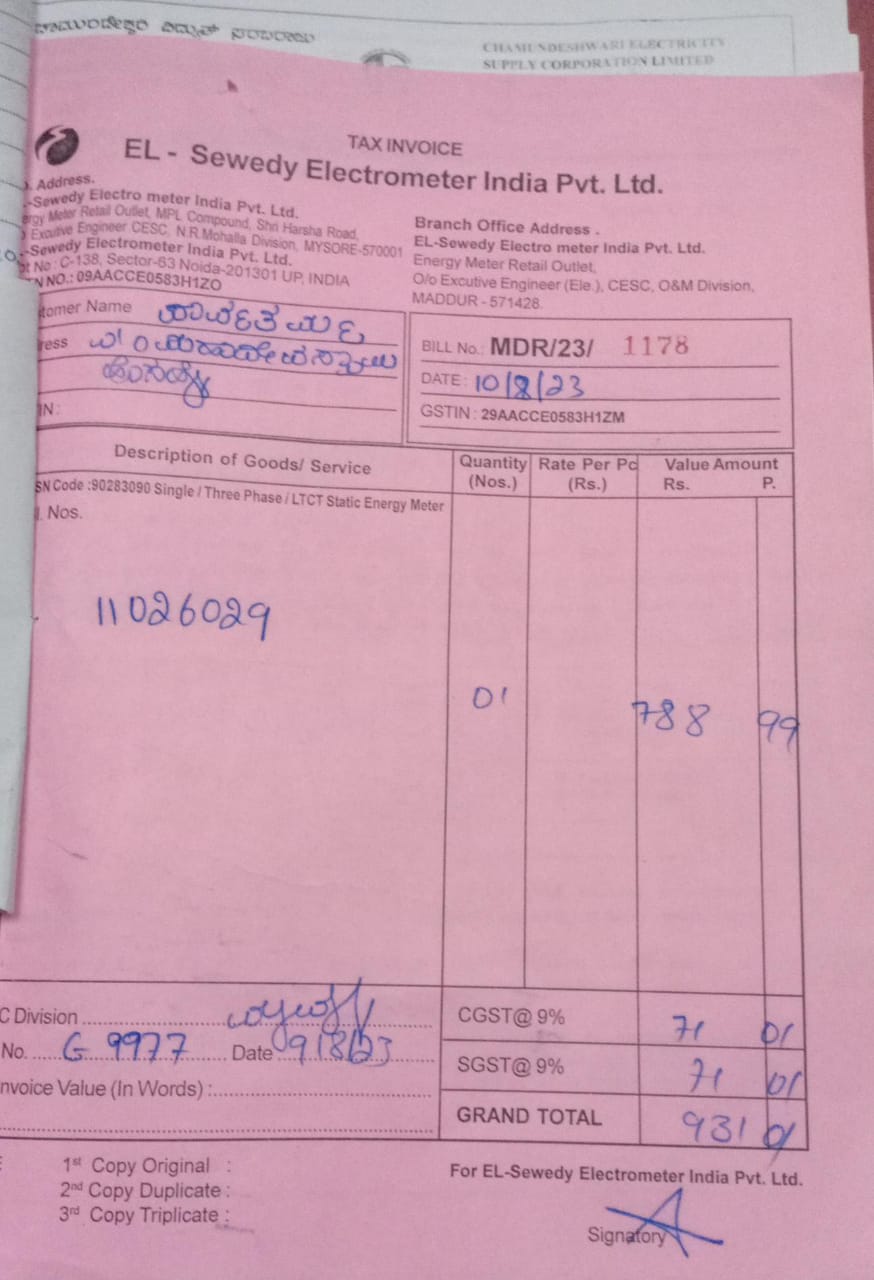 CHAMUNDESHWARI ELECTRICITY
SUPPLY CORPORATION LIMITED
TAX INVOICE
EL - Sewedy Electrometer India Pvt. Ltd.
. Address.
-Sewedy Electro meter India Pvt. Ltd.
ergy Meter Retail Outlet, MPL Compound, Shri Harsha Road,
Excutive Engineer CESC, N.R.Mohalla Division, MYSORE-570001
-Sewedy Electrometer India Pvt. Ltd.
ot No : C-138, Sector-63 Noida-201301 UP, INDIA
N NO.: 09AACCE0583H1ZO
Branch Office Address .
EL-Sewedy Electro meter India Pvt. Ltd.
Energy Meter Retail Outlet,
O/o Excutive Engineer (Ele.), CESC, O&M Division,
MADDUR - 571428.
tomer Name
ress
IN :
BILL No.: MDR/23/ 1178
DATE : 10/8/23
GSTIN : 29AACCE0583H1ZM
Description of Goods/ Service Quantity (Nos.) Rate Per Pc (Rs.) Value Amount Rs. P.
SN Code :90283090 Single / Three Phase / LTCT Static Energy Meter
l. Nos.
11026029
01 788 99
C Division
No. G 9977 Date 9/8/23
nvoice Value (In Words) :
CGST@ 9% 71 01
SGST@ 9% 71 01
GRAND TOTAL 931 01
1st Copy Original :
2nd Copy Duplicate :
3rd Copy Triplicate :
For EL-Sewedy Electrometer India Pvt. Ltd.
Signatory